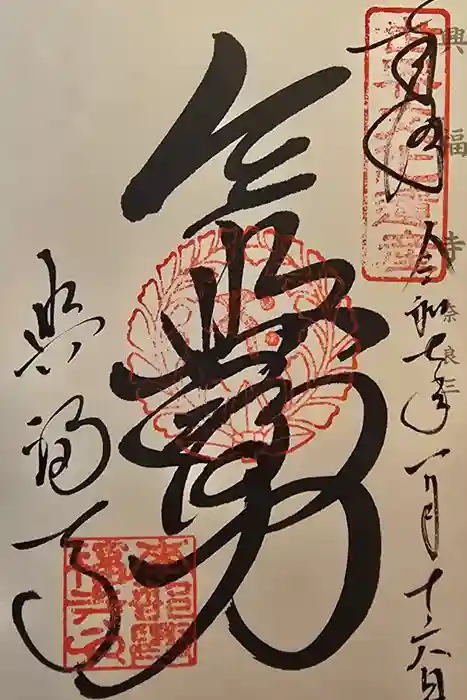 興福寺 奈良三
奉拝 令和七年一月十六日
令興福力
興福寺